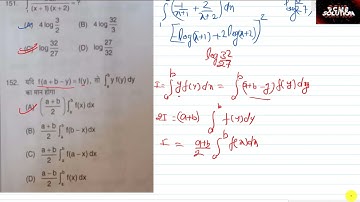 151.
(x+1)(x+2)
(A) 4 log 3/2
(B) 4 log 32/3
log 32/27
(D) log 27/32
152. यदि f(a+b−y) = f(y), तो ∫ₐᵇ y f(y) dy
का मान होगा
(A) (a+b/2) ∫ₐᵇ f(x) dx
(B) (a+b/2) ∫ₐᵇ f(b−x) dx
(C) (a+b/2) ∫ₐᵇ f(a−x) dx
(D) (a−b/2) ∫ₐᵇ f(x) dx
SOLUTION
log 32/27
I = ∫ₐᵇ y f(y) dy = ∫ₐᵇ (a+b−y) f(y) dy
2I = (a+b) ∫ₐᵇ f(y) dy
I = a+b/2 ∫ₐᵇ f(x) dx